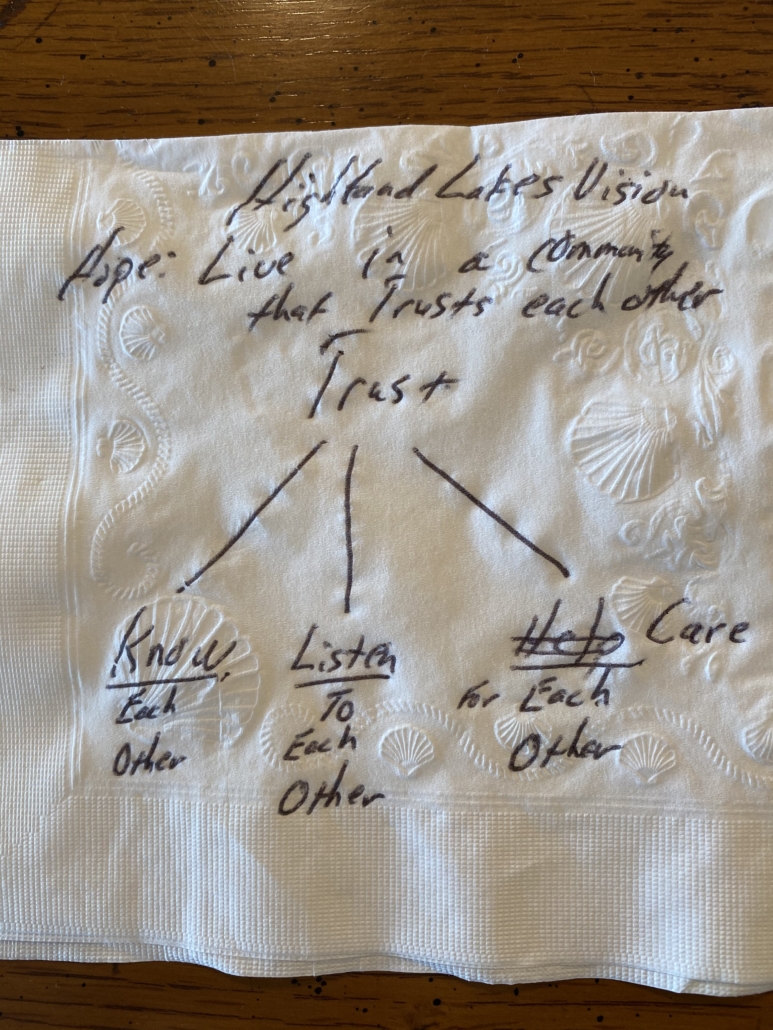 Highland Lakes Vision
Hope: Live in a Community
that Trusts each other
Trust
Know
Each
Other
Listen
To
Each
Other
Help Care
For Each
Other